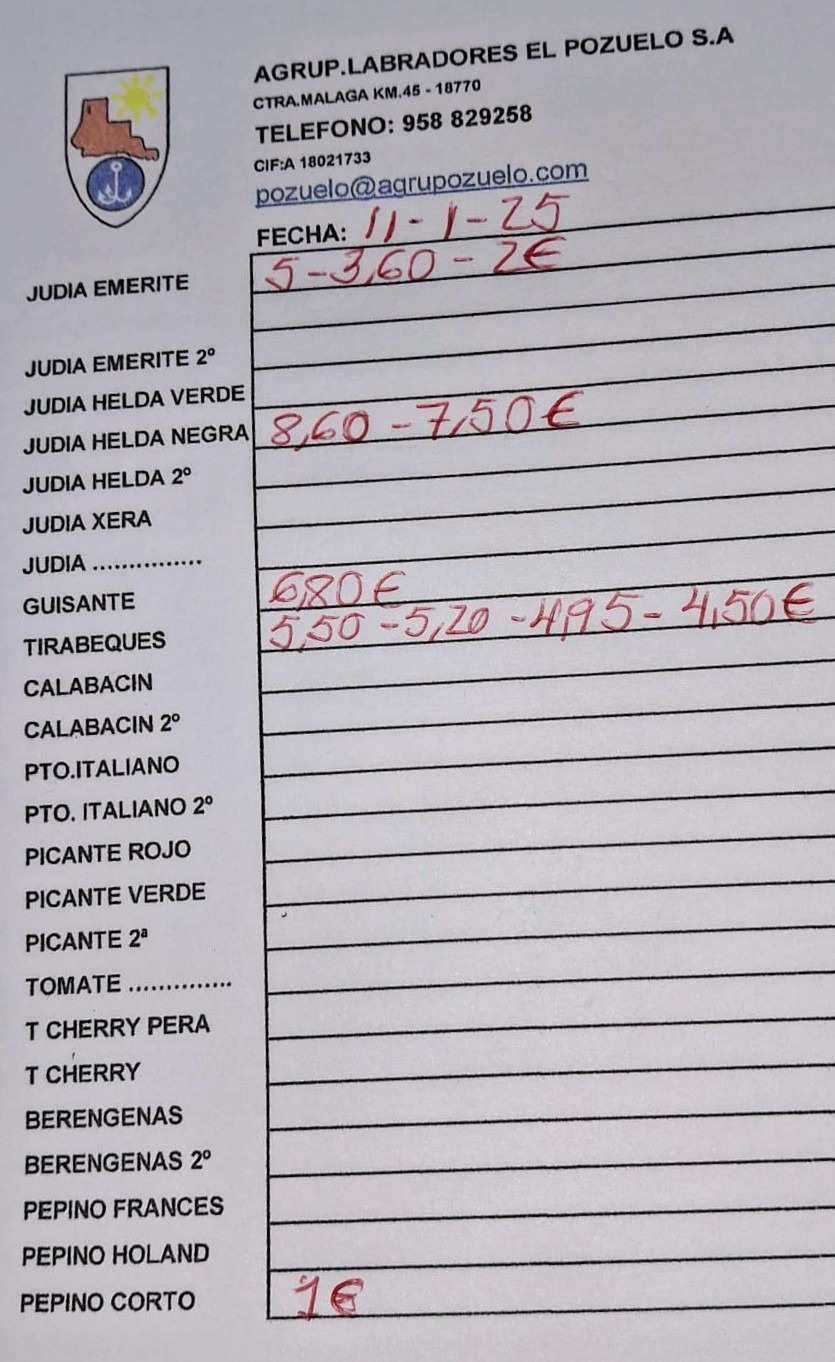 AGRUP.LABRADORES EL POZUELO S.A
CTRA.MALAGA KM.45 - 18770
TELEFONO: 958 829258
CIF:A 18021733
pozuelo@agrupozuelo.com
FECHA: 11-1-25
JUDIA EMERITE 5-3,60-2€
JUDIA EMERITE 2º
JUDIA HELDA VERDE
JUDIA HELDA NEGRA 8,60-7,50€
JUDIA HELDA 2º
JUDIA XERA
JUDIA ...............
GUISANTE 6,80€
TIRABEQUES 5,50-5,20-4,95-4,50€
CALABACIN
CALABACIN 2º
PTO.ITALIANO
PTO. ITALIANO 2º
PICANTE ROJO
PICANTE VERDE
PICANTE 2ª
TOMATE ..............
T CHERRY PERA
T CHERRY
BERENGENAS
BERENGENAS 2º
PEPINO FRANCES
PEPINO HOLAND
PEPINO CORTO 1€